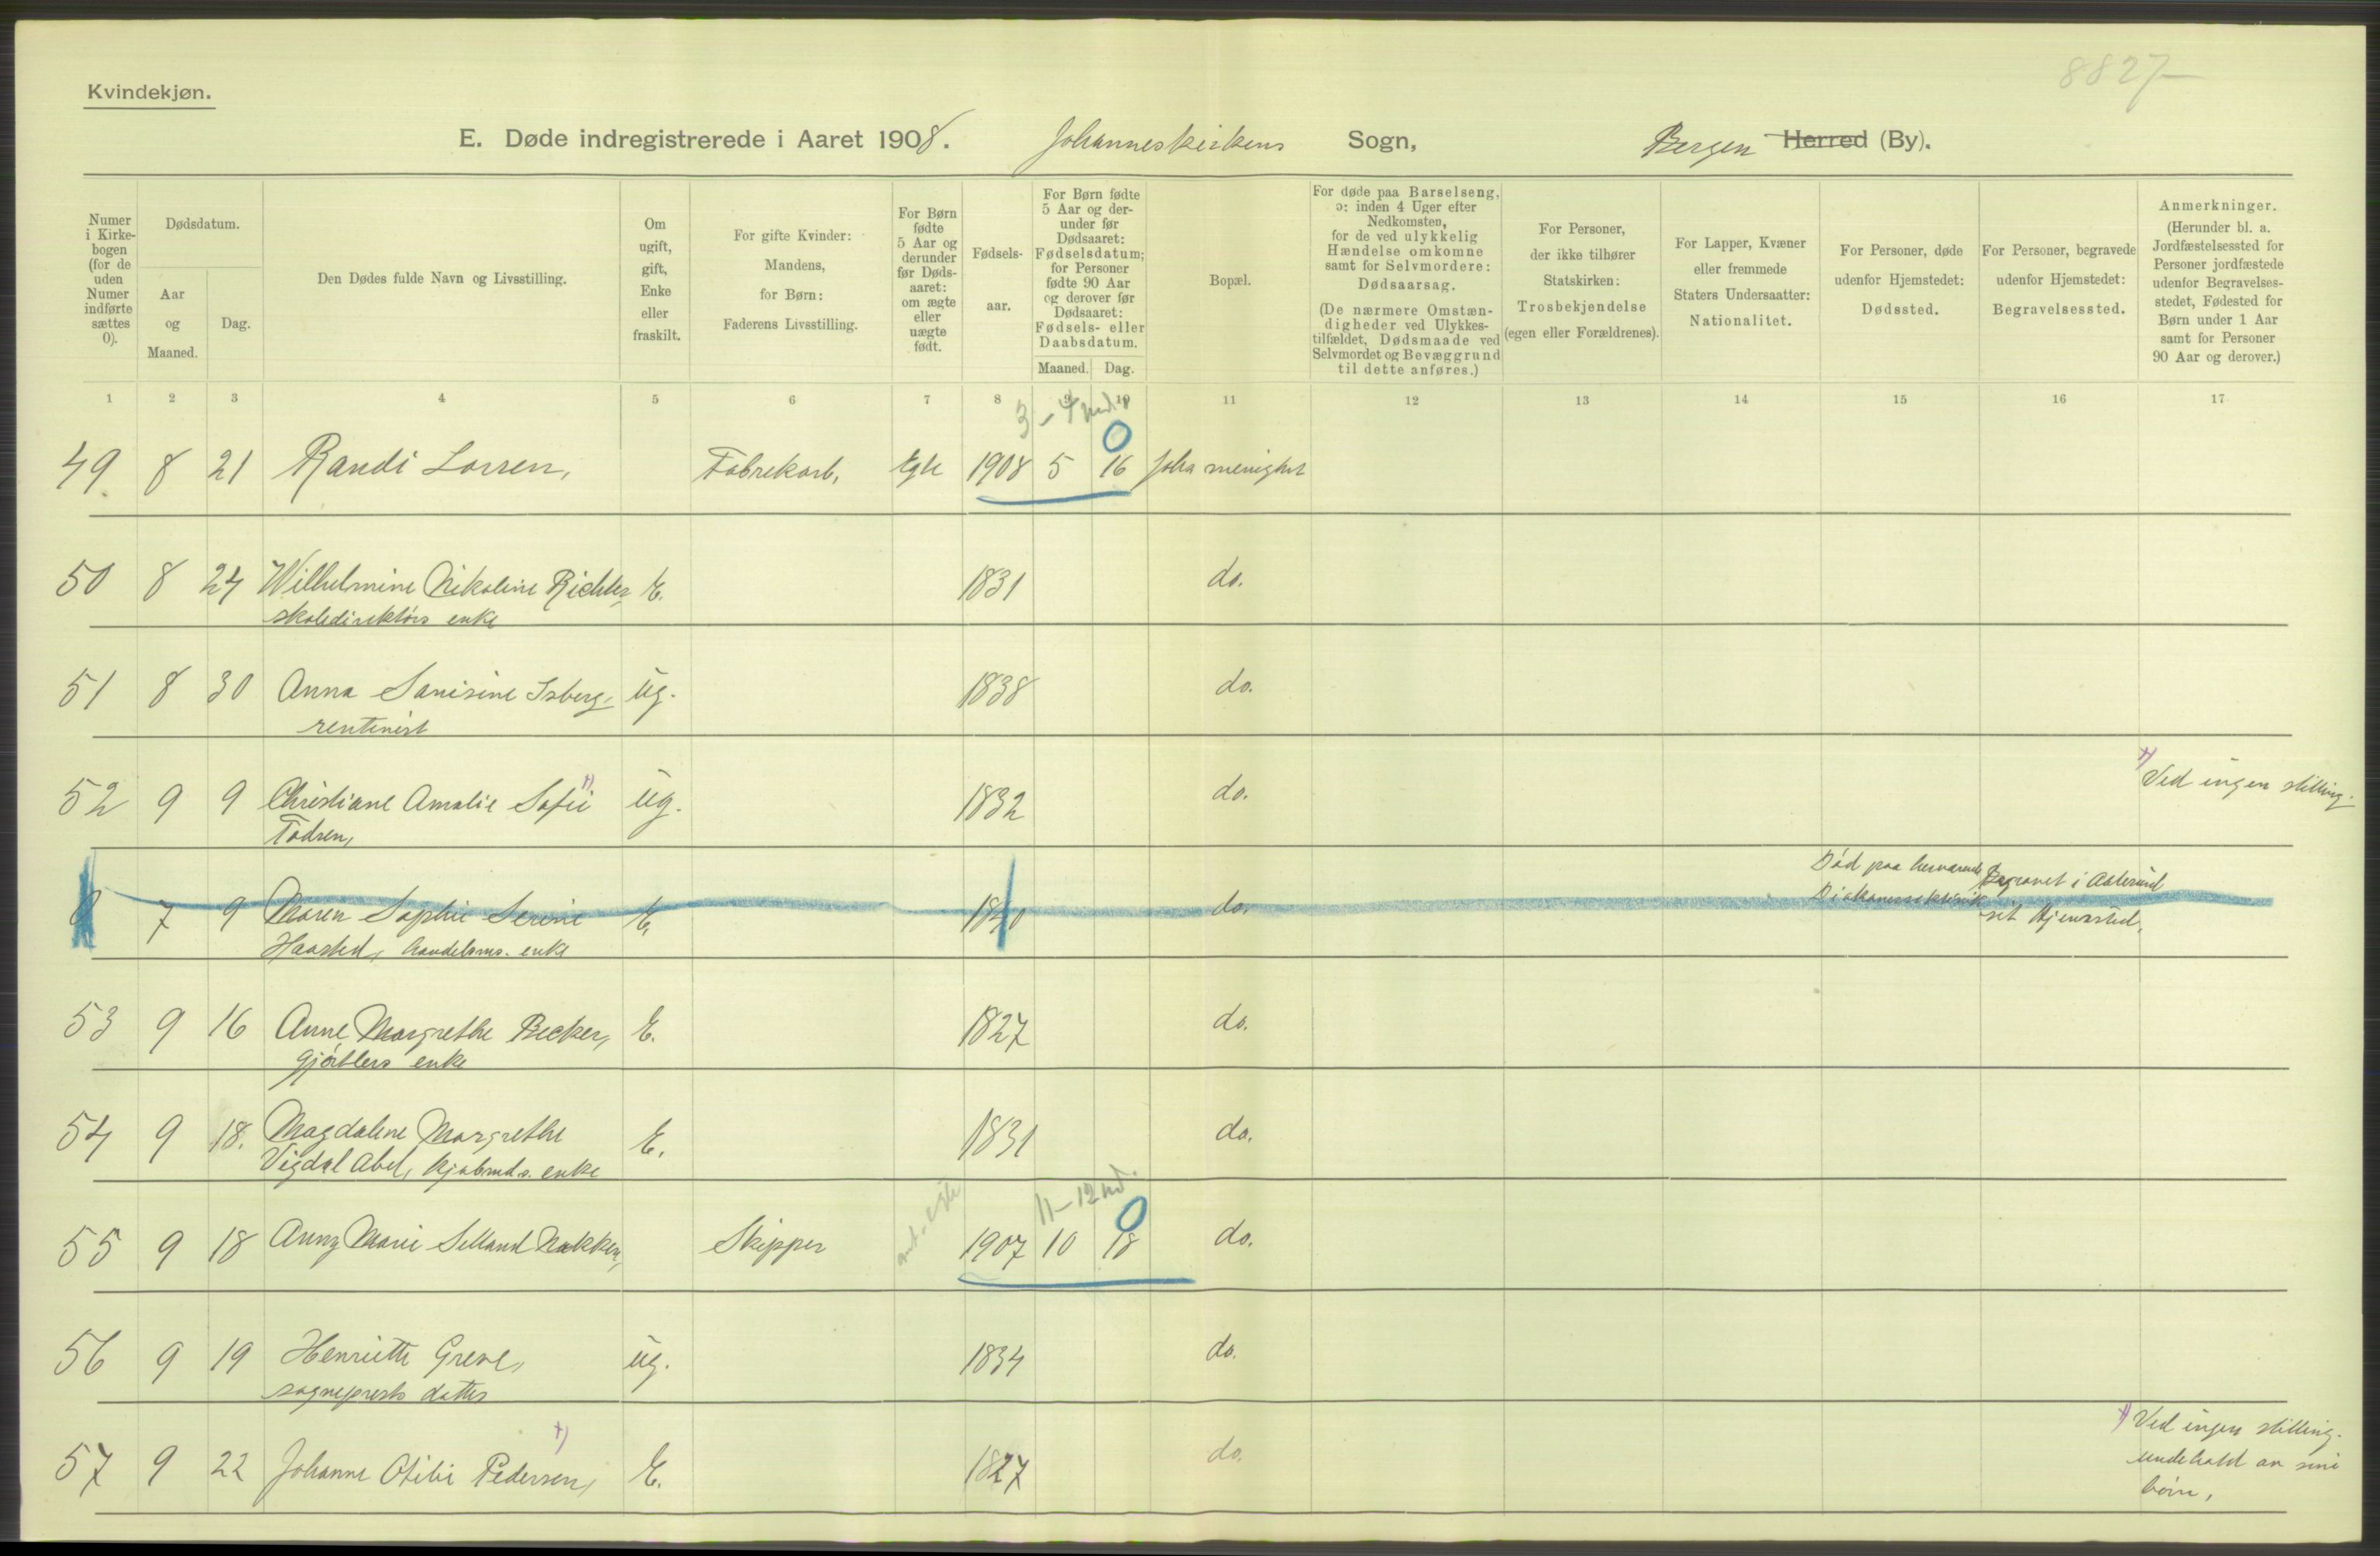 8827
Kvindekjøn.
E. Døde indregistrerede i Aaret 1908. Johanneskirkens Sogn, Bergen Herred (By).
Numer i Kirke-bogen (for de uden Numer indførte sættes 0).
Dødsdatum.
Aar og Maaned.
Dag.
Den Dødes fulde Navn og Livsstilling.
Om ugift, gift, Enke eller fraskilt.
For gifte Kvinder: Mandens, for Børn: Faderens Livsstilling.
For Børn fødte 5 Aar og derunder før Døds-aaret: om ægte eller uægte født.
Fødsels-aar.
For Børn fødte 5 Aar og der-under før Dødsaaret: Fødselsdatum; for Personer fødte 90 Aar og derover før Dødsaaret: Fødsels- eller Daabsdatum.
Maaned. Dag.
Bopæl.
For døde paa Barselseng, ɔ: inden 4 Uger efter Nedkomsten, for de ved ulykkelig Hændelse omkomne samt for Selvmordere: Dødsaarsag.
(De nærmere Omstæn-digheder ved Ulykkes-tilfældet, Dødsmaade ved Selvmordet og Bevæggrund til dette anføres.)
For Personer, der ikke tilhører Statskirken: Trosbekjendelse (egen eller Forældrenes).
For Lapper, Kvæner eller fremmede Staters Undersaatter: Nationalitet.
For Personer, døde udenfor Hjemstedet: Dødssted.
For Personer, begravede udenfor Hjemstedet: Begravelsessted.
Anmerkninger. (Herunder bl. a. Jordfæstelsessted for Personer jordfæstede udenfor Begravelses-stedet, Fødested for Børn under 1 Aar samt for Personer 90 Aar og derover.)
1 2 3 4 5 6 7 8 9 10 11 12 13 14 15 16 17
3-4 md.
0
49. 8 21 Randi Larsen, Fabrikarb, Egte 1908 5 16 Joha menighet
50 8 24 Wilhelmine Nikoline Richter, E. 1831 do.
skoledirektørs enke
51 8 30 Anna Sanisine Isberg, ug. 1838 do.
rentenist
52 9 9 Christiane Amalie Sofie ug. 1832 do. Ved ingen stilling.
Tadsen,
0 7 9 Maren Sophie Serine E. 1840 do. Død paa herværende Begravet i Aalesund
Haasted, handelsms. enke Diakonisseklinik sit Hjemsted.
53 9 16 Anne Margrethe Becker, E. 1827 do.
Gjørtlers enke
54 9 18. Magdalene Margrethe E. 1831 do.
Vigdal Abel, kjøbmds. enke
11-12 md.
0
55 9 18 Anny Marie Selland Nakken, Skipper ant. egte 1907 10 18 do.
56 9 19 Henriette Greve, ug. 1834 do.
sogneprests datter
57 9 22 Johanne Otilie Pedersen, E. 1827 do. Ved ingen stilling.
undehold av sine
børn,